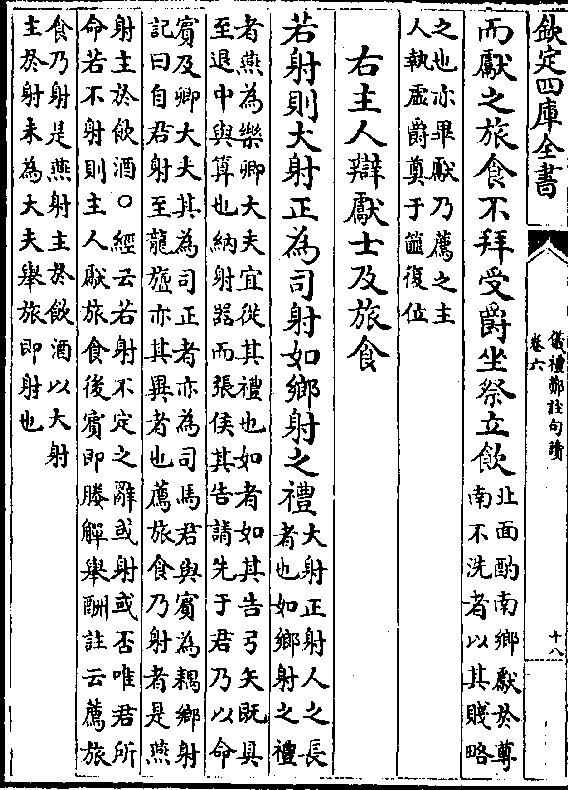 欽定四庫全書
儀禮鄭註句讀
卷六
十八
而獻之旅食不拜受爵坐祭立飲
北面酌南鄉獻於尊
南不洗者以其賤略
之也亦畢獻乃薦之主
人執虛爵奠于篚復位
右主人辯獻士及旅食
若射則大射正為司射如鄉射之禮
大射正射人之長
者也如鄉射之禮
者燕為樂卿大夫宜從其禮也如者如其告弓矢既具
至退中與算也納射器而張侯其告請先于君乃以命
賓及卿大夫其為司正者亦為司馬君與賓為耦鄉射
記曰自君射至龍旜亦其異者也薦旅食乃射者是燕
射主於飲酒○經云若射不定之辭或射或否唯君所
命若不射則主人獻旅食後賓即媵觶舉酬註云薦旅
食乃射是燕射主於飲酒以大射
主於射未為大夫舉旅即射也